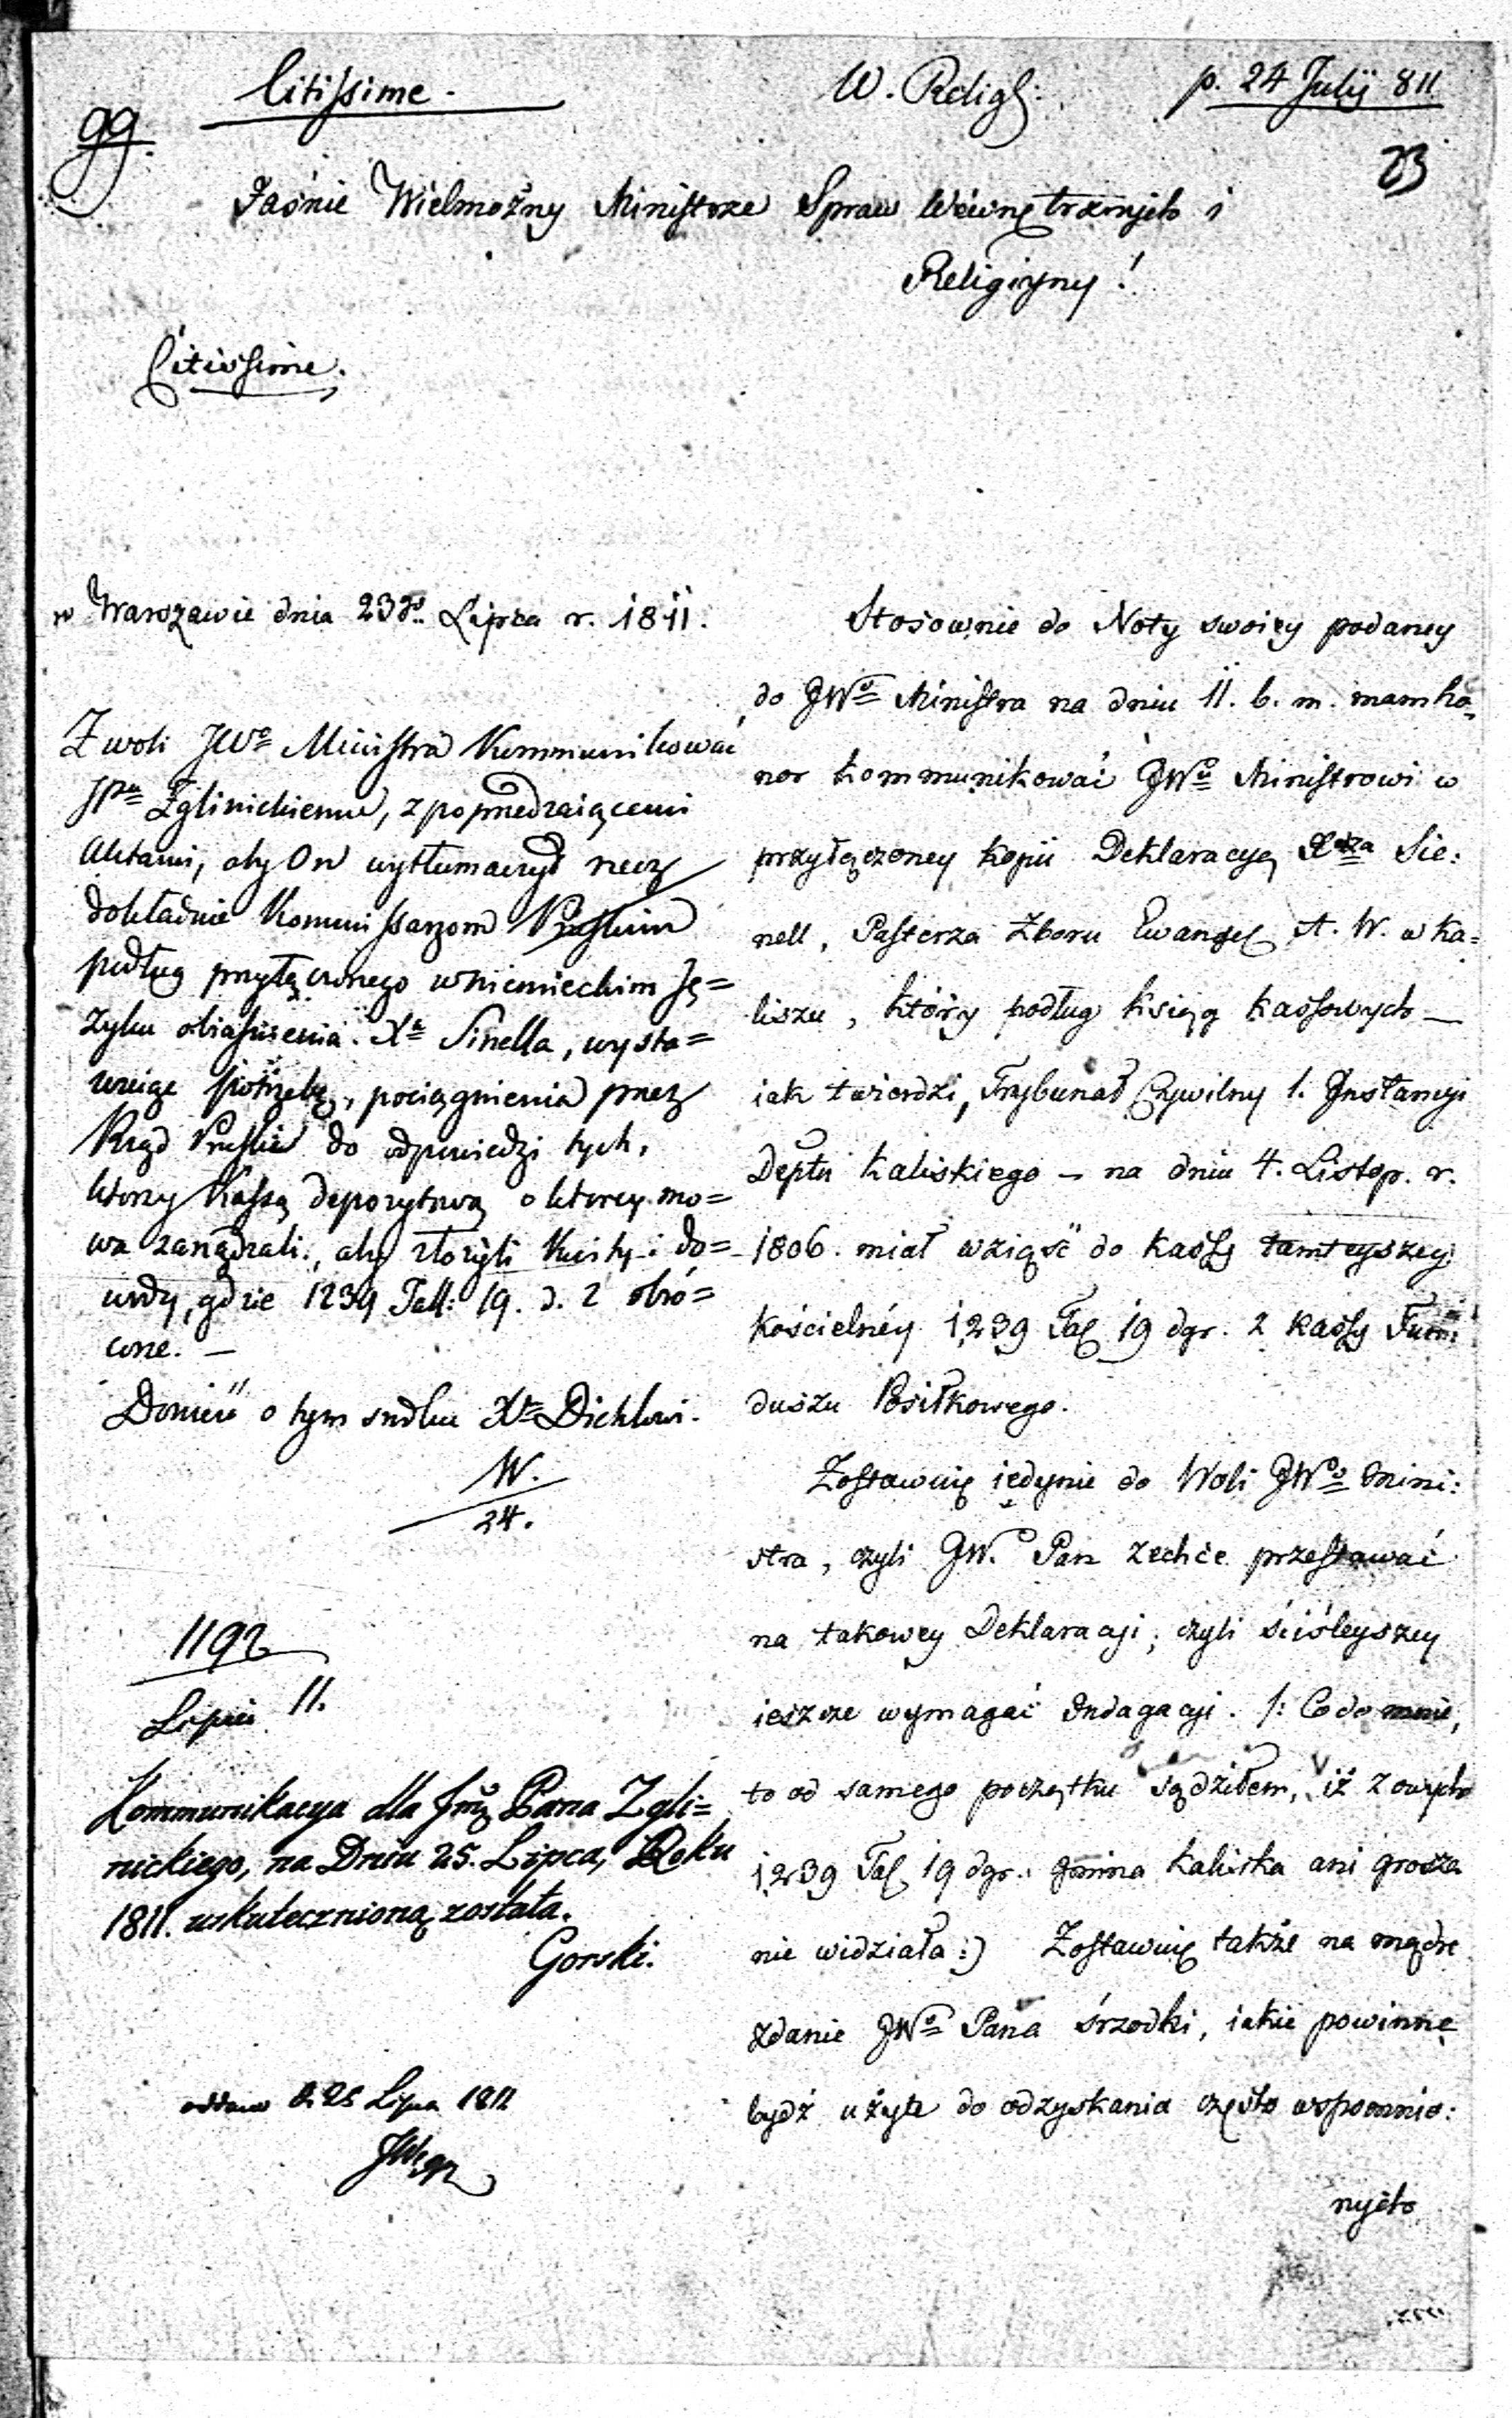 Citissime.
W. Relig:
p. 24 Julij 811.
gg.
23
Jaśnie Wielmożny Ministrze Spraw Wewnętrznych i
Religiyny!
Citissime.
w Warszawie dnia 23go Lipca r. 1811.
Z woli JWo Ministra Kommunikować
JPu Zglinickiemu, z poprzedzaiącemi
Aktami, aby On wytłumaczył rzecz
dokładnie Kommissarzom Pruskim
podług przyłączonego w niemieckim Ję=
zyku obiasnienia Xa Sinella, wysta=
wuiąc potrzebę, pociągnienia przez
Rząd Pruski do odpowiedzi tych,
ktorzy Kassą depozytową o ktorey mo=
wa zarządzali, aby złożyli Kwity i do=
wody, gdzie 1239 Tall: 19. d. 2 obró=
cone. —
Donieść o tym skutku Xdzu Diehlowi.
W.
24.
1192
Lipca 11.
Kommunikacya dla Jmę Pana Zgli=
nickiego, na Dniu 25. Lipca, Roku
1811. uskutecznioną została.
Gorski.
oddano d. 25 Lipca 1811
Stosownie do Noty swoiey podaney
do JWo Ministra na dniu 11. b. m. mam ho=
nor kommunikować JWu Ministrowi w
przyłączoney kopii Deklaracyę Xdza Sie:
nell, Pasterza Zboru Ewangel A. W. w Ka=
liszu, który podług ksiąg kassowych —
iak twierdzi, Trybunał Cywilny 1. Instancyi
Deptu Kaliskiego — na dniu 4. Listop. r.
1806. miał wziąść do kassy tamteyszey
kościelnéy 1239 Tal 19 dgr. 2 kassy Fun:
duszu Posiłkowego.
Zostawuię iedynie do Woli JWo Mini:
stra, czyli JW. Pan zechce przestawać
na takowey Deklaracyi, czyli ściśleyszey
ieszcze wymagać Indagacyi. /: Co do mnie,
to od samego początku sądziłem, iż z owych
1239 Tal 19 dgr.: gmina kaliska ani grosza
nie widziała:) Zostawuię także na mądre
zdanie JWo Pana śrzodki, iakie powinne
bydź użyte do odzyskania często wspomnio:
nych